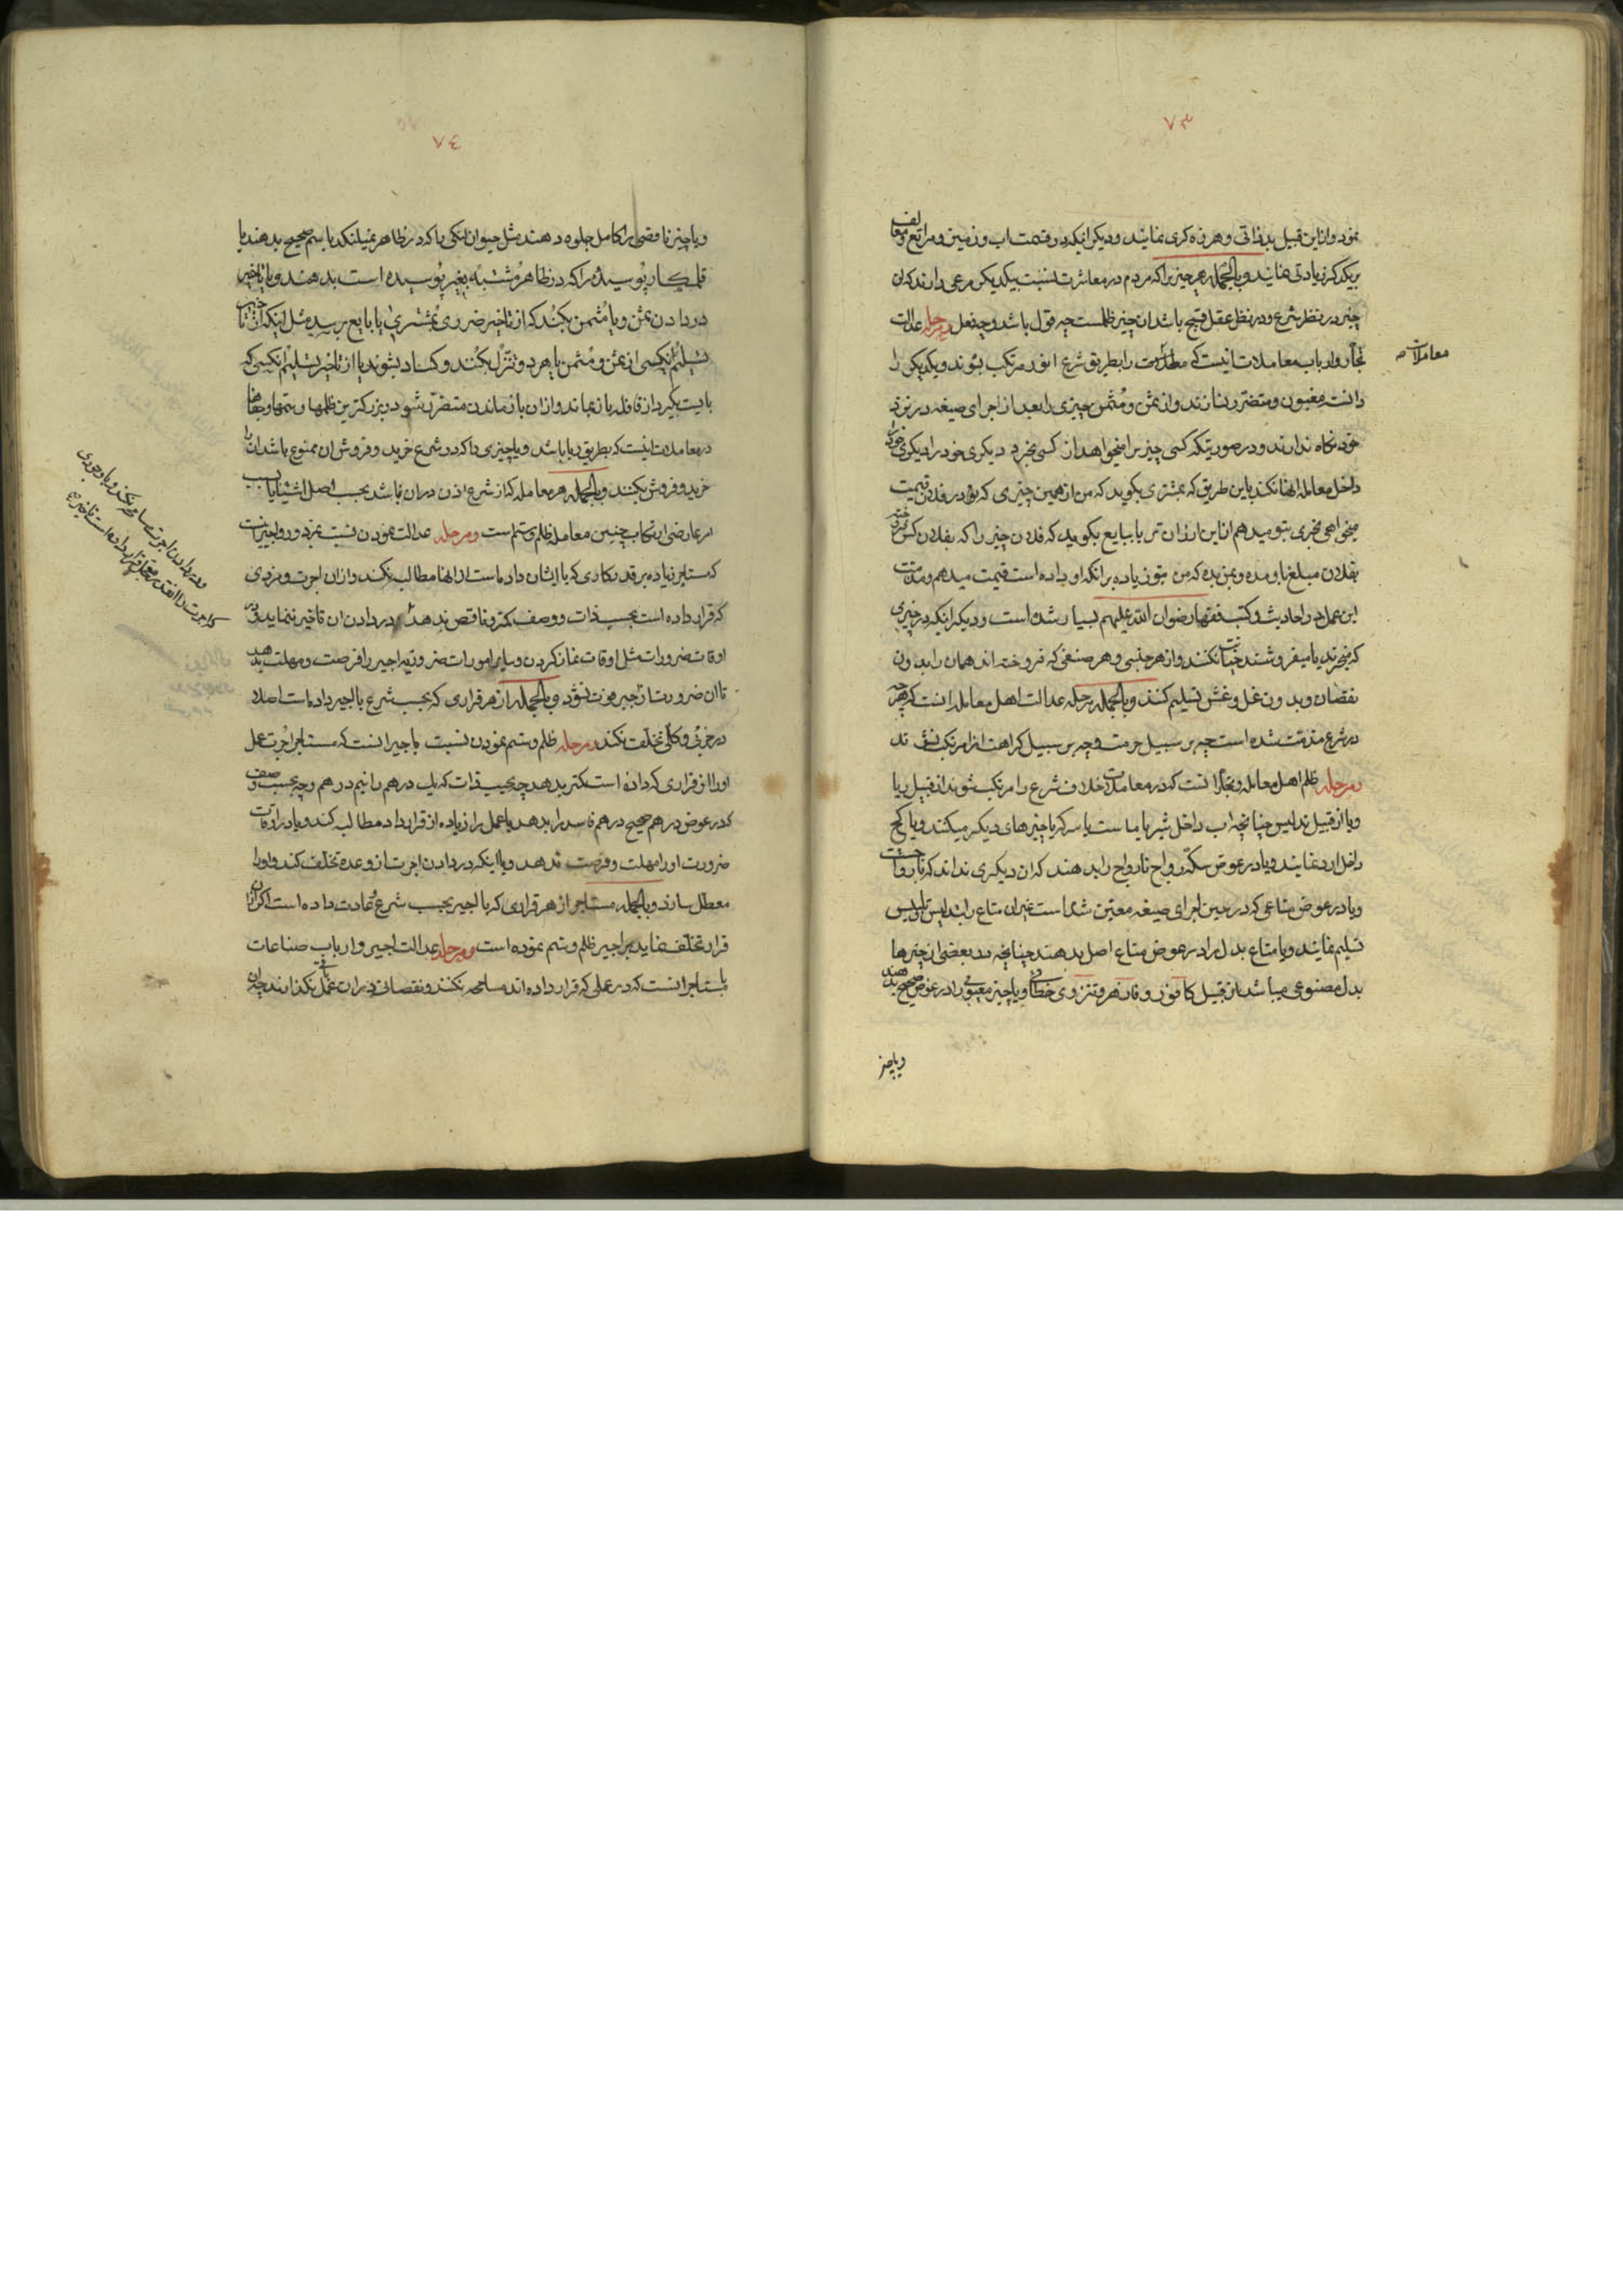 ٧٣
نمود و از این قبیل بدذاتی و هرزه کری نمایند و دیکر انیکه در قیمت اب و زمین و مراتع و معالف
بر یکدکر زیادتی نمایند و بالجمله هر چیز یرا که مردم در معاشرت نسبت بیکدیکر مرعی دارند که ان
چیز در نظر شرع و در نظر عقل قبیح باشد ان چیز ظلمست چه قول باشد و چه فعل و مرحله عدالت
تجار و ارباب معاملات انیست که معاملات را بطریق شرع انور مرتکب شوند و یکدیکر را
معاملات
دانسته مغبون و متضرر نسازند و از ثمن و مثمن چیزی را بعد از اجرای صیغه در نزد
خود نکاه ندارند و در صورتیکه کسی چیز یرا میخواهد از کسی بخرد دیکری خود را
داخل معامله انها نکند باین طریق که بمشتری بکوید که من از همین چیزی که تو در فلان قیمت
میخواهی بخری بتو میدهم از این ارزان تر یا ببایع بکوید که فلان چیز را که بفلان کس فروخته
بفلان مبلغ باو مده و بمن بده که من بتو زیاده بر انکه او داده است قیمت میدهم و مذمت
این عمل در احادیث و کتب فقهاء رضوان الله علیهم بسیار شده است و دیکر انیکه در چیزی
که میخرند یا میفروشند خیانت نکنند و از هر جنسی و هر صنفی که فروخته اند همان را بدون
نقصان و بدون غل و غش تسلیم کنند و بالجمله مرحله عدالت اهل معامله انست که هر چه
در شرع مذمت شده است چه بر سبیل حرمت و چه بر سبیل کراهت از ا مرتکب نشوند
و مرحله ظلم اهل معامله و تجار انست که در معاملات خلاف شرع را مرتکب شوند از قبیل ربا
و یا از قبیل تدلیس چنانچه اب داخل شیر یا ماست یا سرکه یا چیزهای دیکر میکنند و یا کج
داخل ارد نمایند و یا در عوض سکه رواج نا رواج را بدهند که ان دیکری نداند که نا رواج است
و یا در عوض متاعی که در حین اجرای صیغه معین شده است غیر ان متاع را بتدلیس و تلبیس
تسلیم نمایند و یا متاع بدل را در عوض متاع اصل بدهند چنانچه در بعضی از چیزها
بدل مصنوعی میباشد از قبیل کافور و فادزهر و تنزوی خطائی و یا چیز معیوبی را در عوض صحیح بدهند
و یا چیز
٧٤
و یا چیز ناقصی را کامل جلوه دهند مثل حیوان لنکی را که در ظاهر نمیلنکد باسم صحیح بدهند یا
قلمکار پوسیده را که در ظاهر مشتبه بغیر پوسیده است بدهند و یا تاخیر
در دادن ثمن و یا مثمن بکنند که از تاخیر ضرری بمشتری یا ببایع برسد مثل اینکه از تاخیر
تسلیم انکسی از ثمن و مثمن بایهر دو تنزل بکنند و کساد بشوند یا از تاخیر تسلیم انکسی که
بایست بکیرد از قافله باز بماند و از ان باز ماندن متضرر شود و بزرکترین ظلمها و ستمها و جفاها
در معاملات انیست که بطریق ربا باشد و یا چیزی را که در شرع خرید و فروش ان ممنوع باشد انرا
خرید و فروش بکنند و بالجمله هر معامله که از شرع اذن در ان نباشد بحسب اصل اشیا یا بسبب
امر عارضی ارتکاب چنین معامله ظلم و ستم است و مرحله عدالت نمودن نسبت بمزدور و اجیر انست
که مستاجر زیاده بر قدر کاری که با ایشان داده است از انها مطالبه نکند و از ان اجرت و مزدی
که قرار داده است بحسب ذات و وصف کمتر و ناقص ندهد و در دادن ان تاخیر ننماید و در
اوقات ضرورات مثل اوقات نماز کردن و سایر امورات ضروریه اجیر را فرصت و مهلت بدهد
تا ان ضرورت از اجیر فوت نشود و بالجمله از هر قراری که بحسب شرع با اجیر داده است اصلا
در جزئی و کلی تخلف نکند و مرحله ظلم و ستم نمودن نسبت باجیر انست که مستاجر اجرت عمل
او را از قراری که داده است کمتر بدهد چه بحسب ذات که یک درهم را نیم درهم و چه بحسب وصف
که در عوض درهم صحیح درهم فاسد را بدهد یا عمل را زیاده از قرارداد مطالبه کند و یا در اوقات
ضرورت او را مهلت و فرصت ندهد و یا اینکه در دادن اجرت از وعده تخلف کند و او را
معطل سازد و بالجمله مستاجر از هر قراری که با اجیر بحسب شرع و عادت داده است اکر از ان
قرار تخلف نماید بر اجیر ظلم و ستم نموده است و مرحله عدالت اجیر و ارباب صناعات
بمستاجر انست که در عملی که قرار داده اند مسامحه نکنند و نقصانی در ان عمل باقی نکذارند چه ان
و در دادن اجرت مسامحه نکند و با وجودی